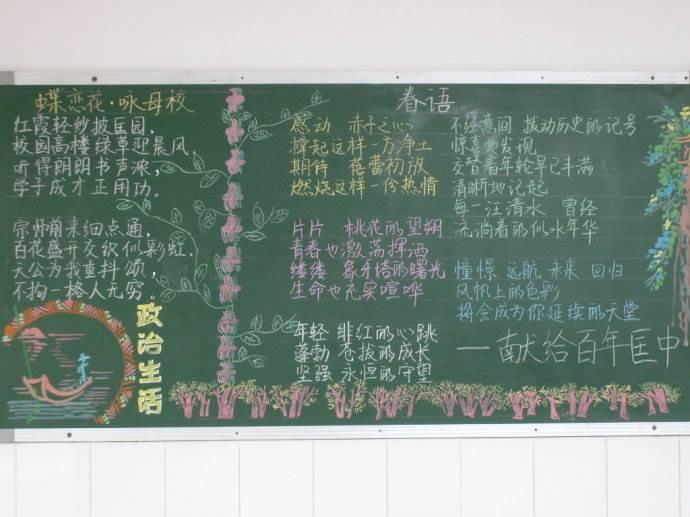 蝶恋花·咏母校
红霞轻纱披匡园，
校园高楼绿草迎晨风，
听得朗朗书声浓，
学子成才正用功。
宗师前来细点通，
百花盛开交织似彩虹，
天公为我重抖颂，
不拘一格人无穷。
政治生活
春语
感动 赤子之心
撑起这样一方净土
期待 蓓蕾初放
燃烧这样一份热情
片片 桃花的望朔
青春也激荡挥洒
缕缕 象牙塔的曙光
生命也充实喧哗
年轻 绯红的心跳
蓬勃 苍拔的成长
坚强 永恒的守望
不经意间 拨动历史的记号
惊喜地发现
交替着年轮早已丰满
清晰地记起
每一汪清水 曾经
流淌着的似水年华
憧憬 远航 未来 回归
风帆上的色彩
将会成为你延续的天堂
—献给百年匡中